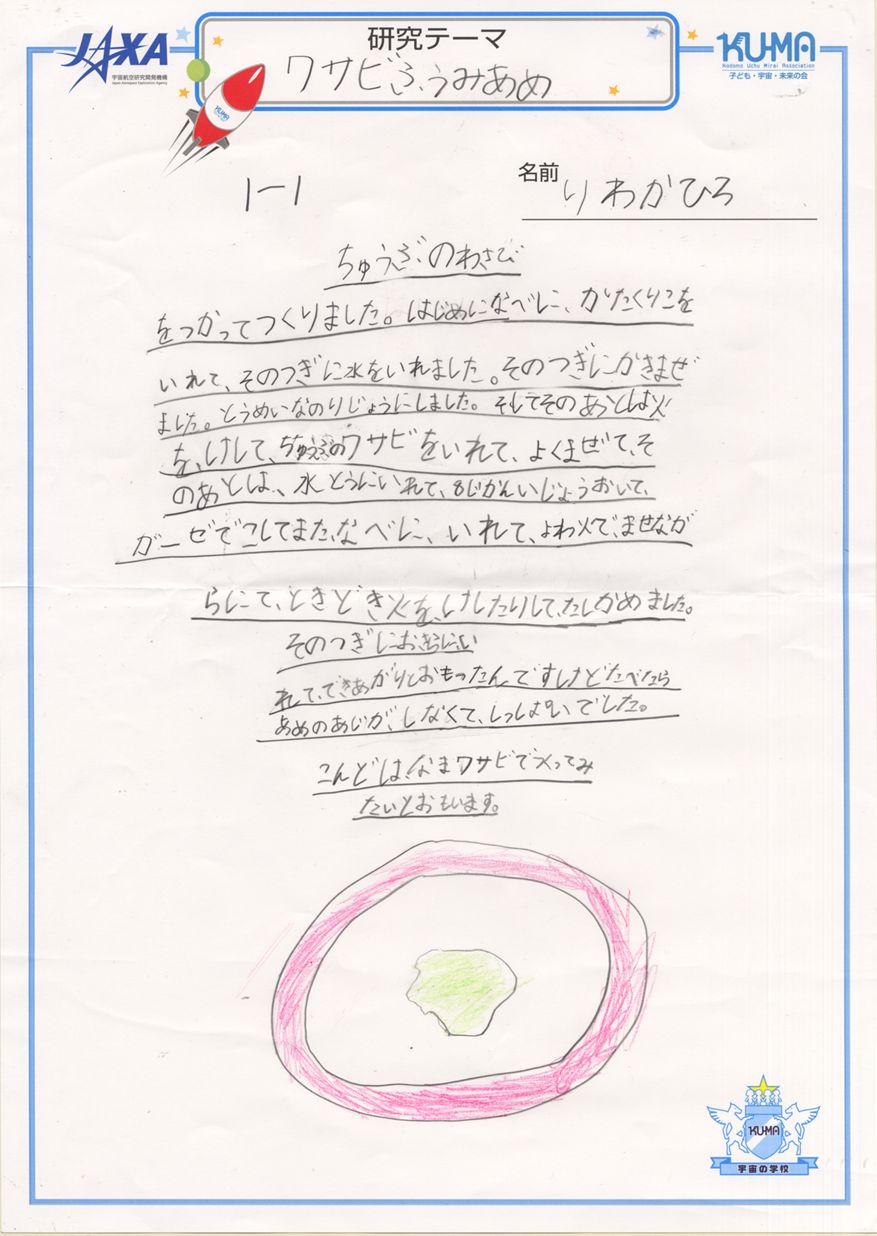 JAXA
宇宙航空研究開発機構
Japan Aerospace Exploration Agency
研究テーマ
ワサビふうみあめ
KU-MA
Kodomo Uchu Mirai Association
子ども・宇宙・未来の会
KU-MA
1-1
名前 りわかひろ
ちゅうぶのわさび
をつかってつくりました。はじめになべに、かたくりこを
いれて、そのつぎに水をいれました。そのつぎにかきまぜ
ました。とうめいなのりじょうにしました。そしてそのあとは火
を、けして、ちゅうぶのワサビをいれて、よくまぜて、そ
のあとは、水とうにいれて、8じかんいじょうおいて、
ガーゼでこしてまた、なべに、いれて、よわ火で、ませなが
らにて、ときどき火を、けしたりして、たしかめました。
そのつぎにおさらにい
れて、できあがりとおもったんですけどたべたら
あめのあじが、しなくて、しっぱいでした。
こんどは、なまワサビでつくってみ
たいとおもいます。
KU-MA
宇宙の学校